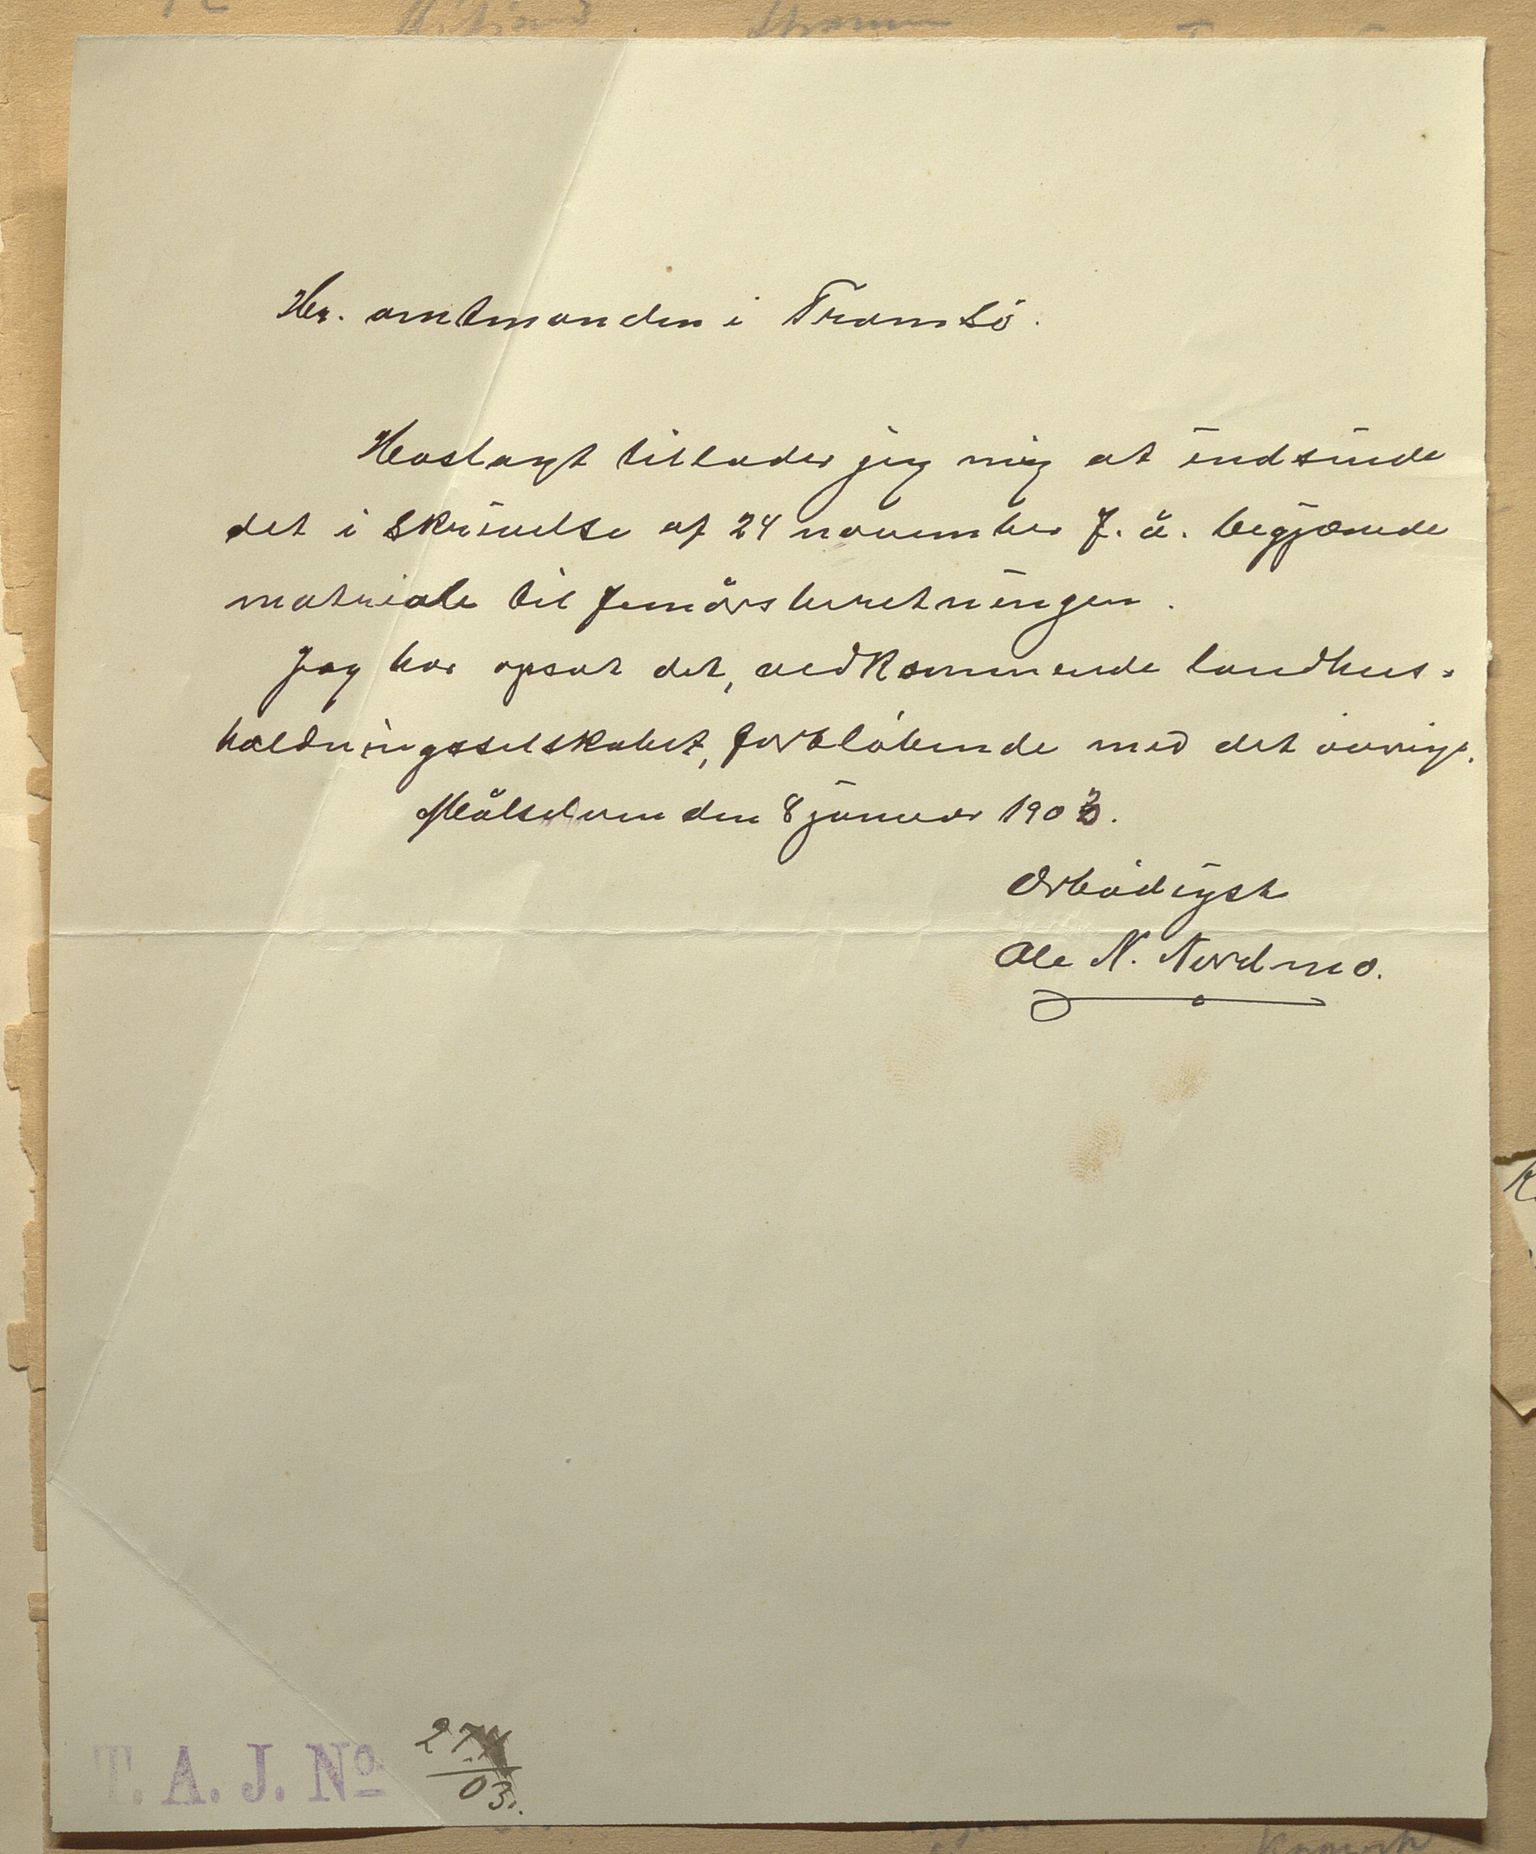 Hr. amtmanden i Tromsö.
Hoslagt tillader jeg mig at indsende
det i skrivelse af 24 november f. å. begjærede
matriale til femårsberetningen.
Jeg har opsat det, vedkommende landhus-
holdningsselskabet, fortløbende med det øvrige.
Målselven den 8 januar 1903.
Ærbødigst
Ole N. Nordmo.
T. A. J. No
03.